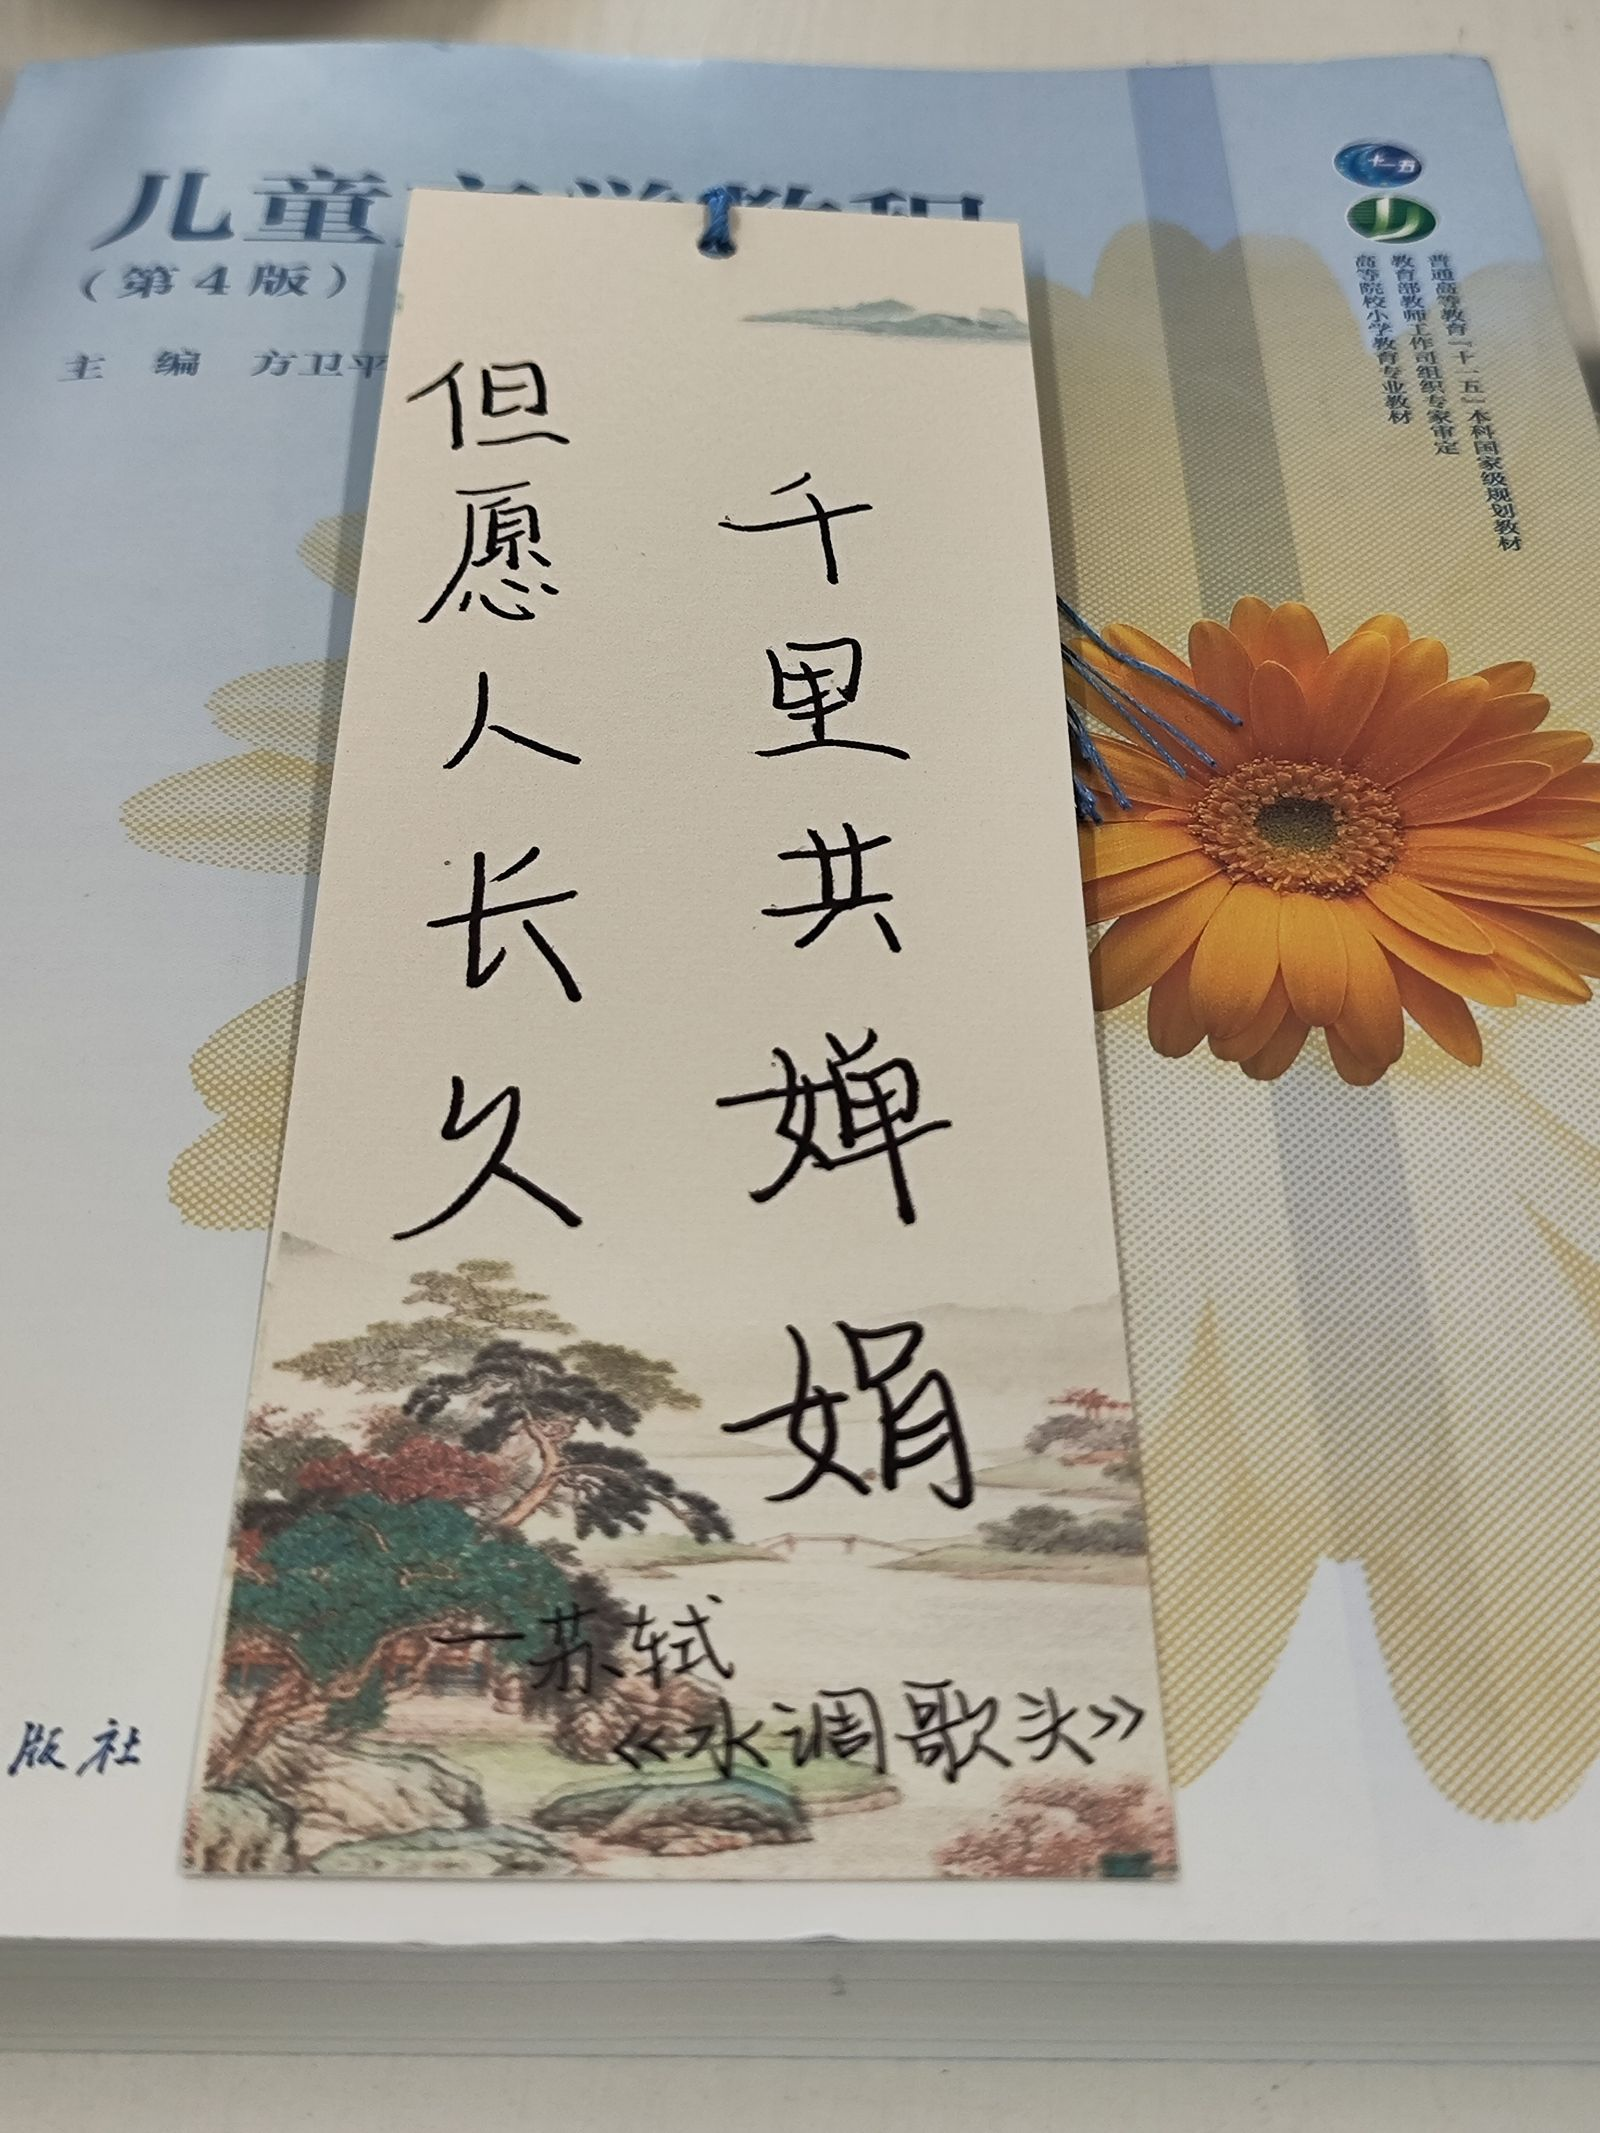 儿童文学教程
（第4版）
主 编 方卫平
十一五
普通高等教育“十一五”本科国家级规划教材
教育部教师工作司组织专家审定
高等院校小学教育专业教材
但愿人长久
千里共婵娟
—苏轼
《水调歌头》
版社